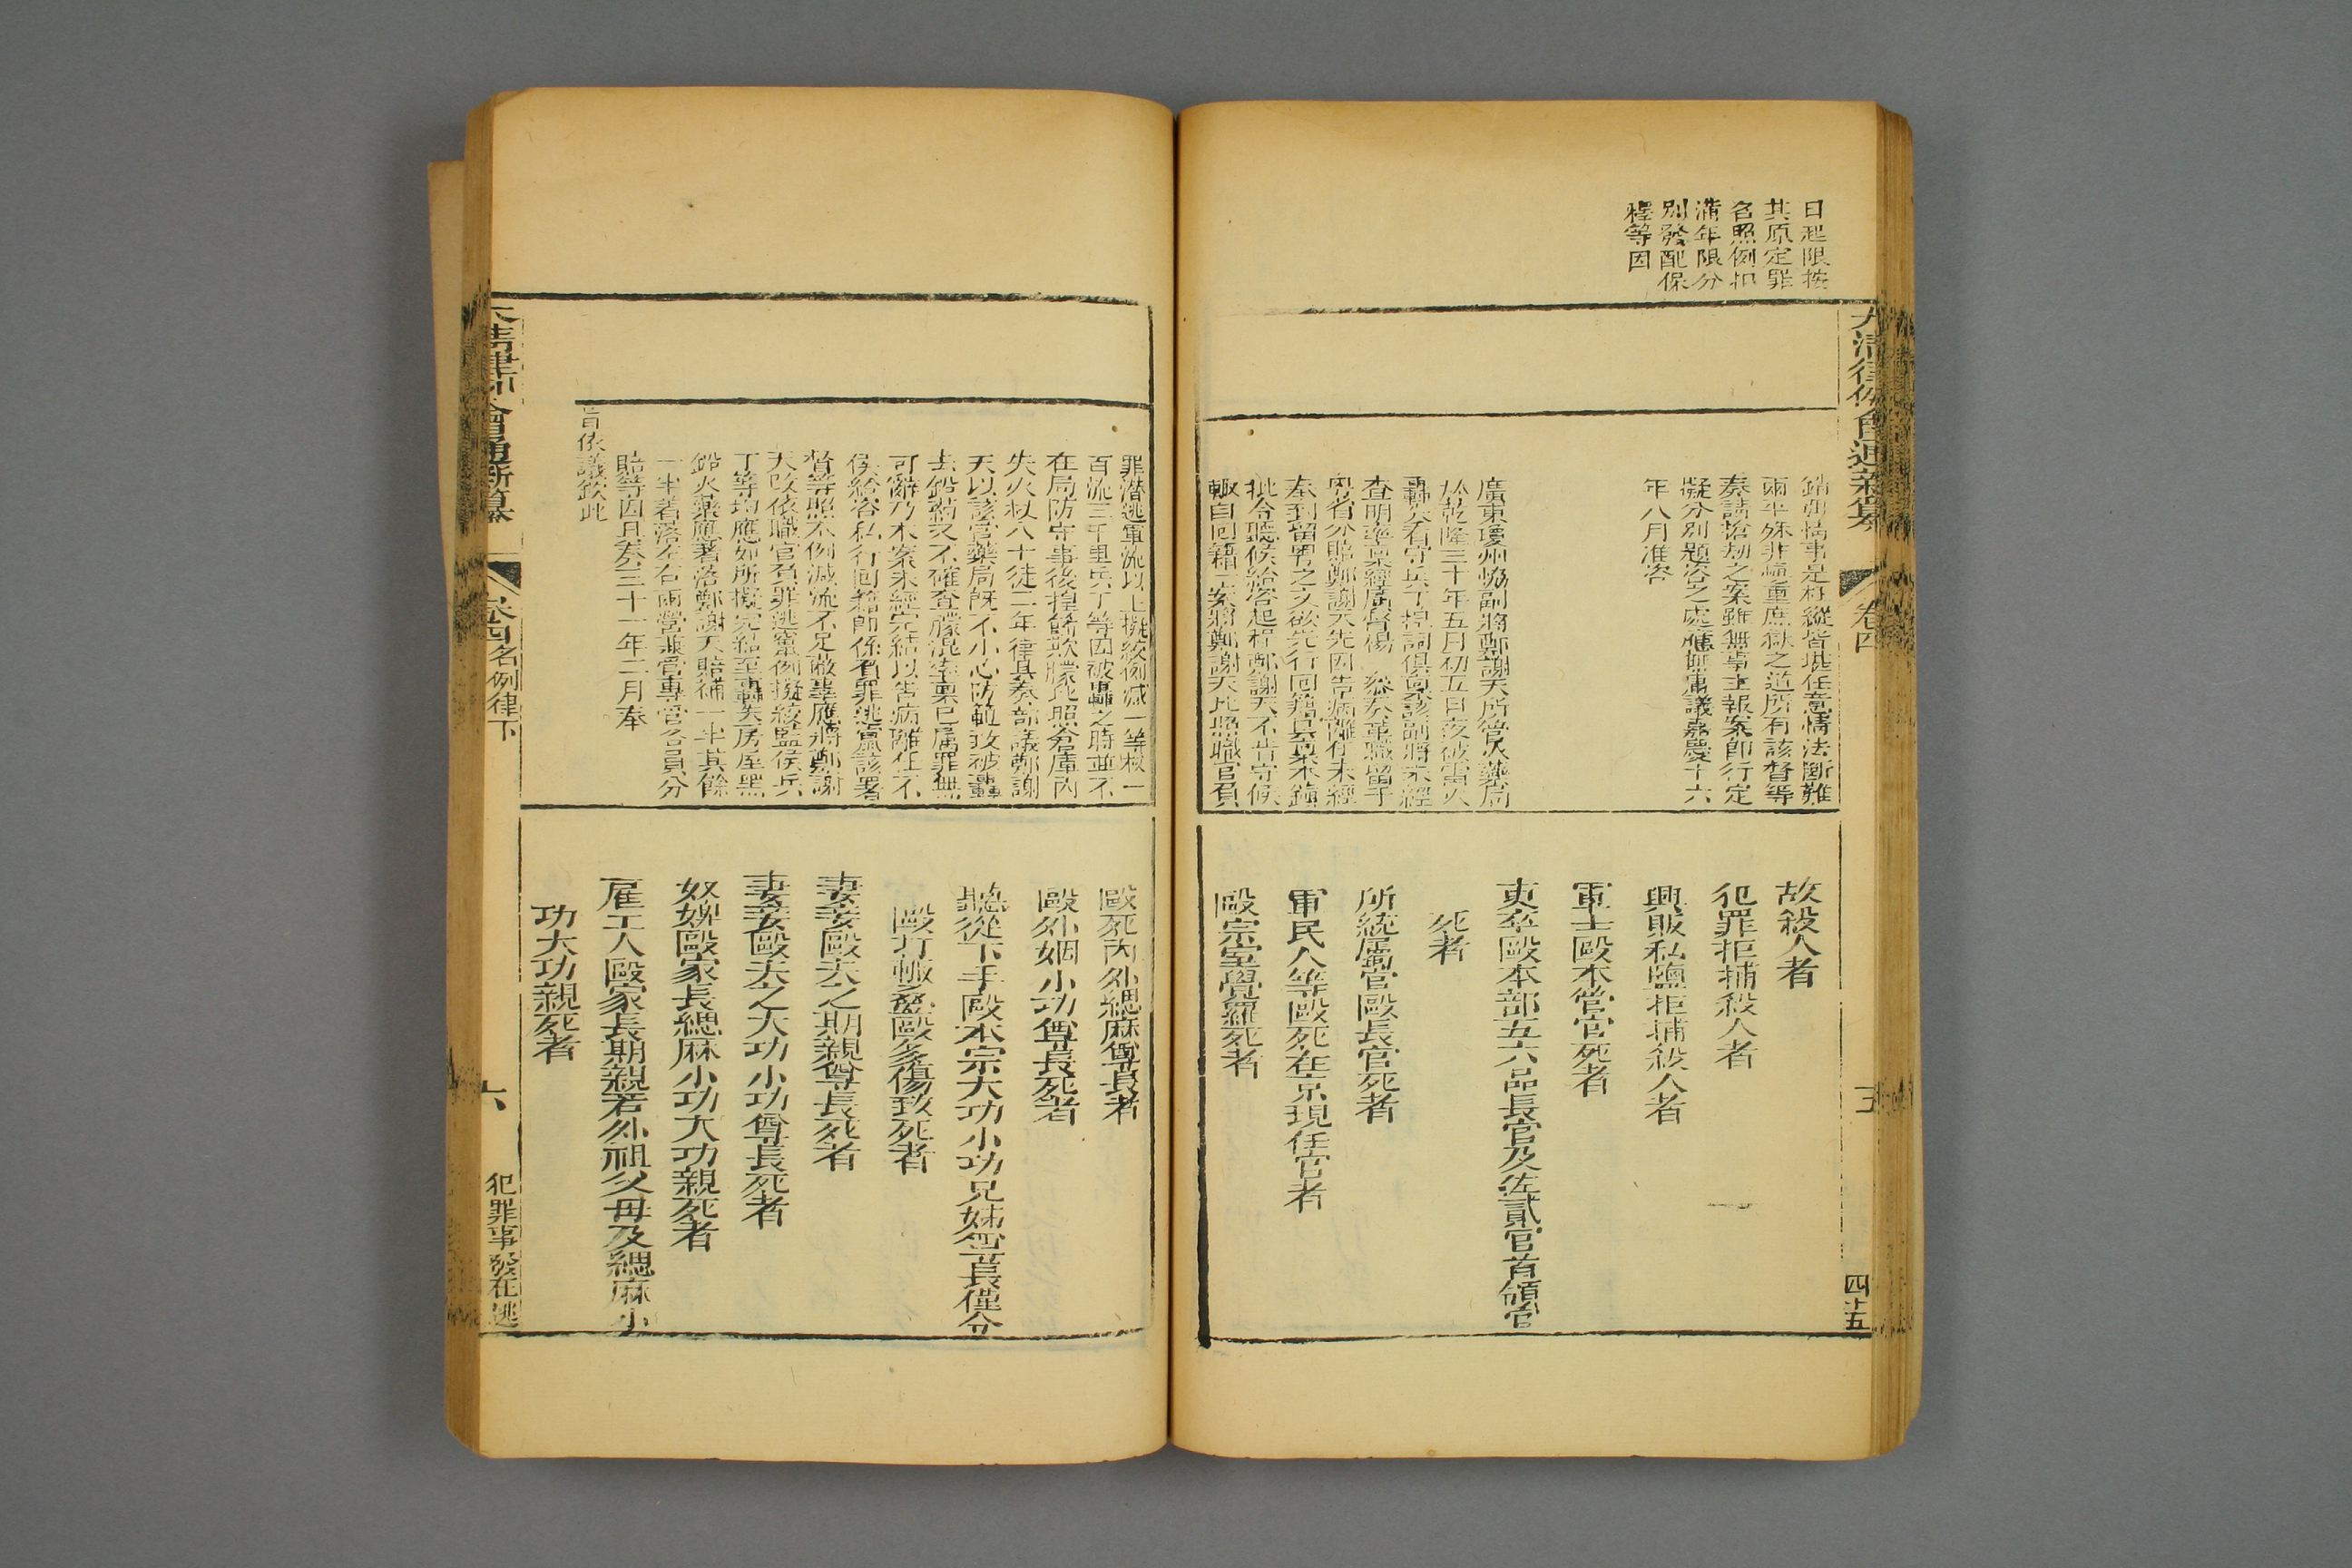 大清律例會通新纂
卷四
五
四十五
日起限按
其原定罪
名照例扣
滿年限分
別發配保
釋等因
銷弭情事是枉縱皆堪任意情法斷難
兩平殊非愼重庶獄之道所有該督等
奏請搶劫之案雖無事主報案即行定
擬分別題咨之處應毋庸議嘉慶十六
年八月准咨
廣東瓊州協副將鄭謝天所管火藥局
於乾隆三十年五月初五日夜被雷火
轟失看守兵丁捏詞俱稟該副將未經
查明率稟經廣督楊 叅奏革職留于
粵省分賠鄭謝天先因告病離任未經
奉到留粵之文欲先行回籍具稟本鎮
批令聽候給咨起程鄭謝天不肯守候
輒自回籍一案將鄭謝天比照職官負
故殺人者
犯罪拒捕殺人者
興販私鹽拒捕殺人者
軍士毆本管官死者
吏卒毆本部五六品長官及佐貳官首領官
死者
所統屬官毆長官死者
軍民人等毆死在京現任官者
毆宗室覺羅死者
罪潛逃軍流以上擬絞例減一等杖一
百流三千里兵丁等因被轟之時並不
在局防守事後捏飾欺朦比照倉庫內
失火杖八十徒二年律具奏部議鄭謝
天以該官藥局既不小心防範致被轟
去鉛藥又不確查朦混率稟已屬罪無
可辭乃本案未經完結以告病離任不
俟給咨私行回籍即係負罪逃竄該署
督等照不例減流不足蔽辜應將鄭謝
天改依職官負罪逃竄例擬絞監侯兵
丁等均應如所擬完結至轟失房屋黑
鉛火藥應著落鄭謝天賠補一半其餘
一半著落左右兩營兼管專管各員分
賠等因具奏三十一年二月奉
旨依議欽此
毆死內外緦麻尊長者
毆外姻小功尊長死者
聽從下手毆本宗大功小功兄姊尊長僅令
毆打輒疊毆多傷致死者
妻妾毆夫之期親尊長死者
妻妾毆夫之大功小功尊長死者
奴婢毆家長緦麻小功大功親死者
雇工人毆家長期親若外祖父母及緦麻小
功大功親死者
大清律例會通新纂
卷四名例律下
六
犯罪事發在逃